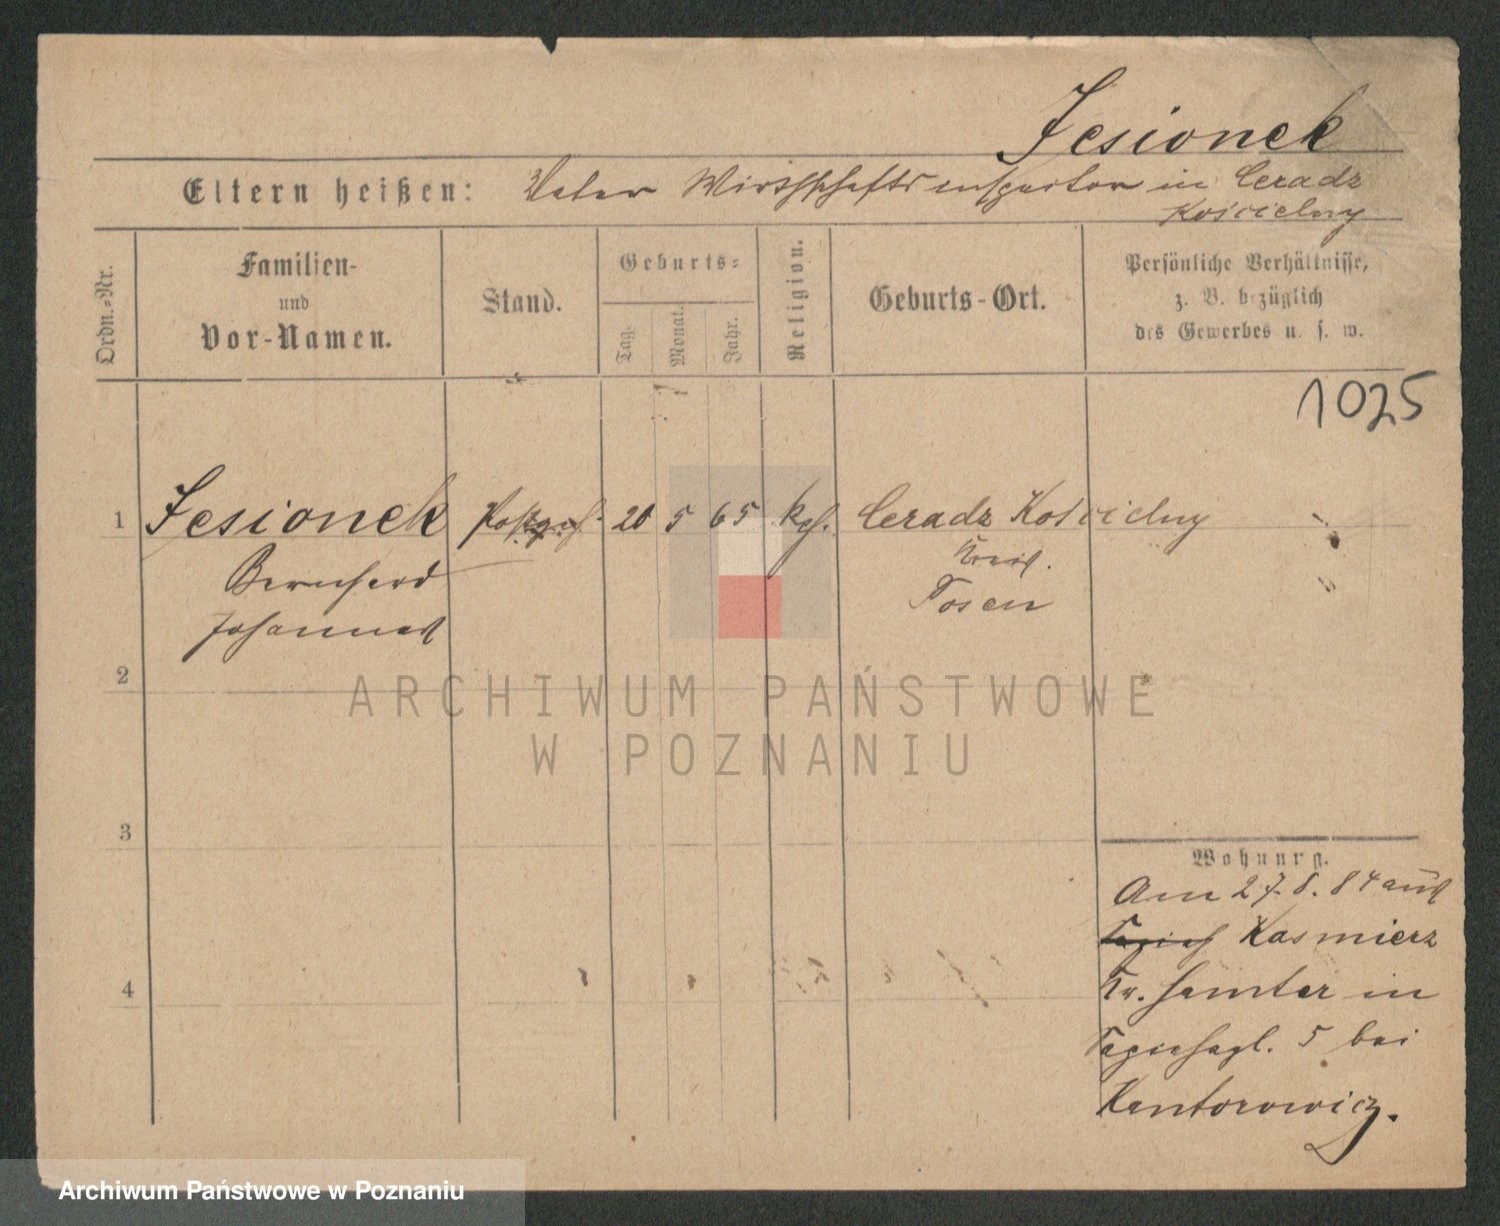 Jesionek
Eltern heißen: Vater Wirthschaftsinspector in Ceradz
Kościelny
Ordn.-Nr.
Familien-
und
Vor-Namen.
Stand.
Geburts-
Tag.
Monat.
Jahr.
Religion.
Geburts-Ort.
Persönliche Verhältnisse,
z. B. bezüglich
des Gewerbes u. s. w.
1025
1 Jesionek 20 5 65 kath. Ceradz Kościelny
Bernhard
Kreis
Johannes
Posen
2
ARCHIWUM PAŃSTWOWE
W POZNANIU
3
Wohnung.
Am 27. 8. 84 aus
Kasmierz
4
Kr. Samter in
5 bei
Kantorowicz.
Archiwum Państwowe w Poznaniu